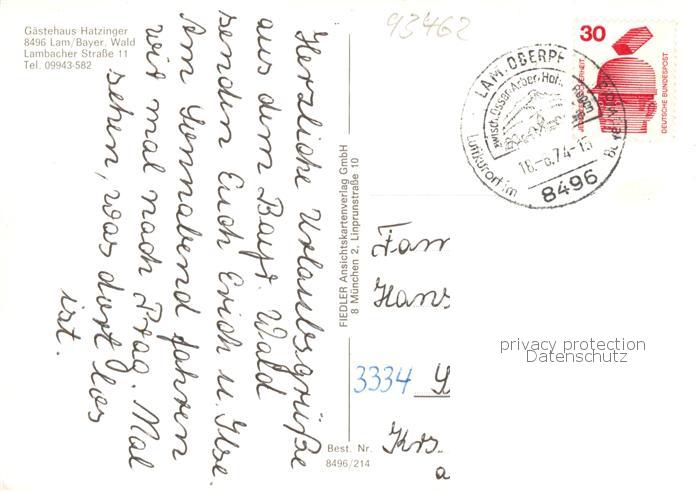 Gästehaus Hatzinger
8496 Lam/Bayer. Wald
Lambacher Straße 11
Tel. 09943-582
Herzliche Urlaubsgrüße
aus dem Bayr. Wald
senden Euch Erich u. Ilse.
Am Sonnabend fahren
wir mal nach Prag. Mal
sehen, was dort los
ist.
FIEDLER Ansichtskartenverlag GmbH
8 München 2, Linprunstraße 10
Best. Nr.
8496/214
93462
30
DEUTSCHE BUNDESPOST
LAM, OBERPF
zwisch. Osser-Arber-Hoh.
Luftkurort im
74-15
8496
Fam
Hans
3334
Krs.
privacy protection
Datenschutz